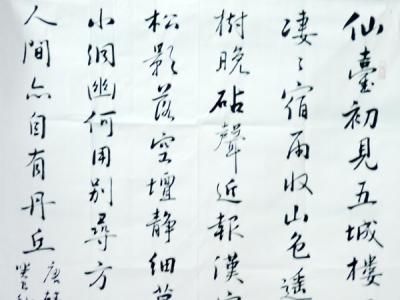 仙臺初見五城樓
淒〻宿雨收山色遙
樹晚砧聲近報漢宮
松影落空壇靜細草
小洞幽何用別尋方
人間亦自有丹丘
唐